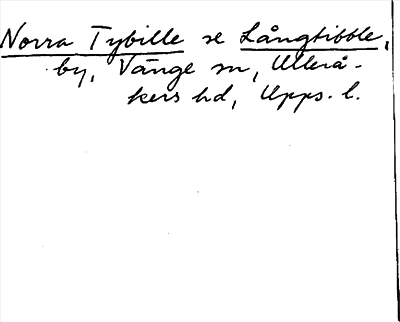 Norra Tybille se Långtibble,
by, Vänge sn, Ullerå-
kers hd, Upps. l.